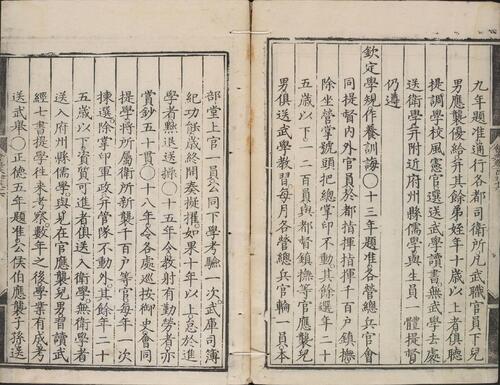 九年題准通行各都司衛所凡武職官員下兒
男應襲優給并其餘弟姪年十歲以上者俱聽
提調學校風憲官選送武學讀書無武學去處
送衛學并附近府州縣儒學與生員一體提督
仍遵
欽定學規作養訓誨○十三年題准各營總兵官會
同提督內外官員於都指揮指揮千百戶鎮撫
除坐營掌號頭把總掌印不動其餘選年二十
五歲以下二百員與都督鎮撫等官應襲兒
男俱送武學教習每月各營總兵官輪一員本
部堂上官一員公同下學考驗一次武庫司簿
紀功能歲終開奏擬擢如果十年以上怠於進
學者黜退送操○十五年令教射有勤勞者亦
賞鈔五十貫○十八年令各處巡按御史會同
提學將所屬衛所新襲千百戶等官每年一次
揀選除掌印軍政并管隊不動外其餘年二十
五歲以下資質可進者俱送入衛學無衛學者
送入府州縣儒學與見在官應襲兒男習讀武
經七書提學往來考察數年之後學業有成考
送武舉○正德五年題准公侯伯應襲子孫送